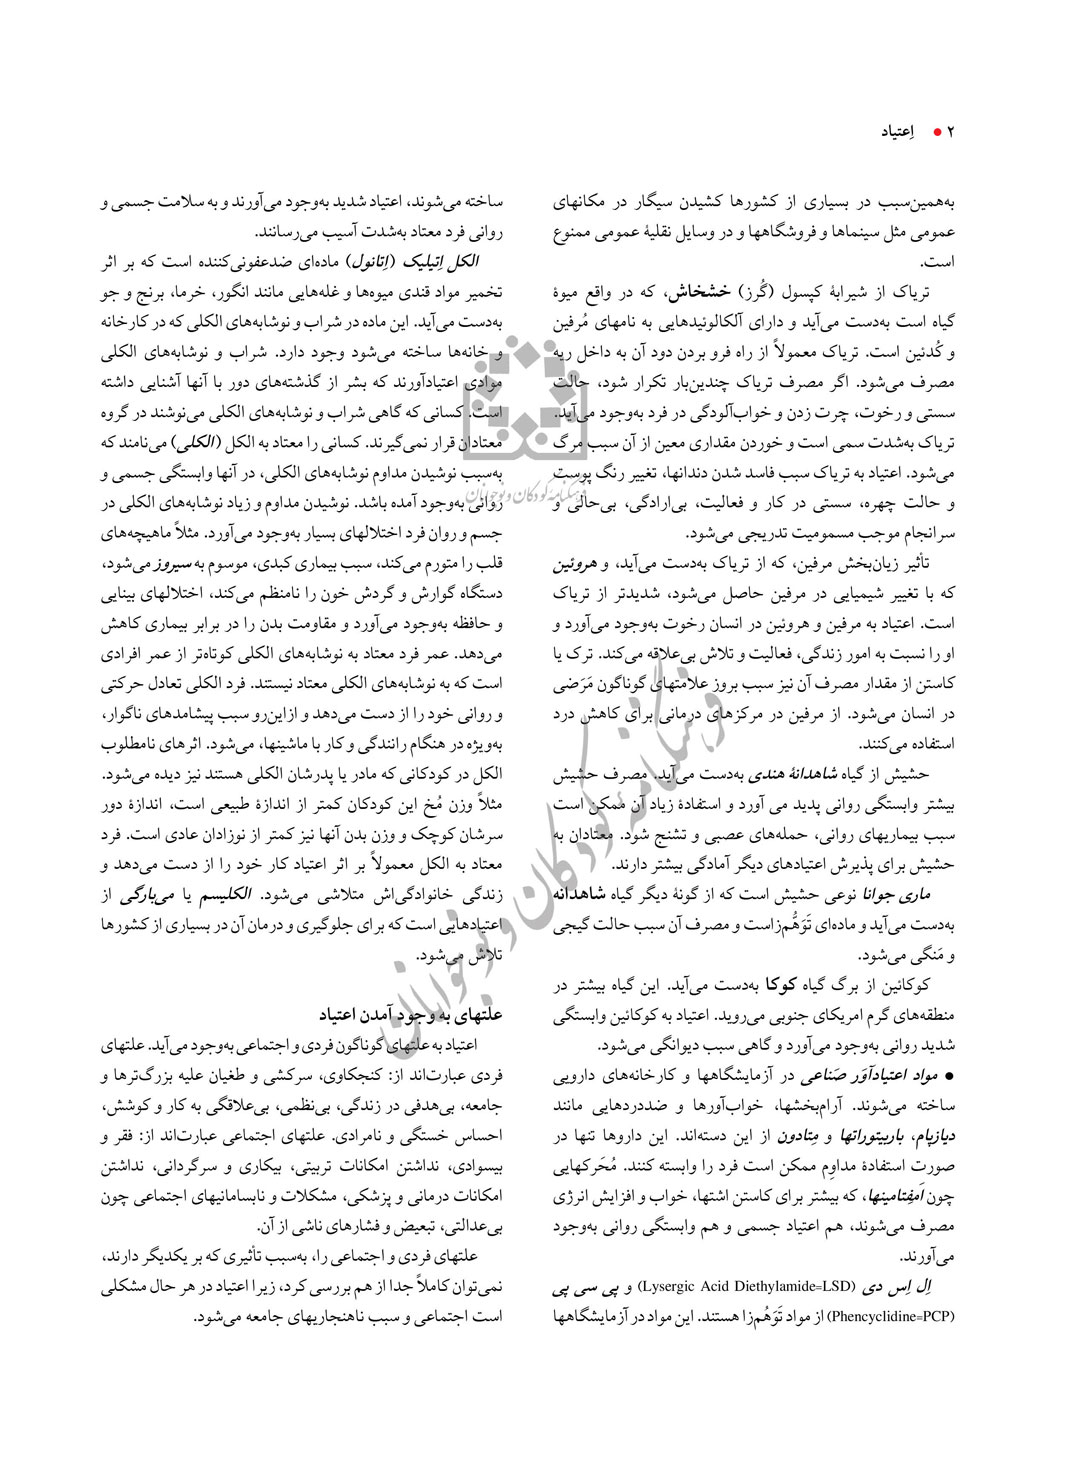 ۲ • اِعتیاد
به‌همین‌سبب در بسیاری از کشورها کشیدن سیگار در مکانهای
عمومی مثل سینماها و فروشگاهها و در وسایل نقلیهٔ عمومی ممنوع
است.
تریاک از شیرابهٔ کپسول (گُرز) خشخاش، که در واقع میوهٔ
گیاه است به‌دست می‌آید و دارای آلکالوئیدهایی به نامهای مُرفین
و کُدئین است. تریاک معمولاً از راه فرو بردن دود آن به داخل ریه
مصرف می‌شود. اگر مصرف تریاک چندین‌بار تکرار شود، حالت
سستی و رخوت، چرت زدن و خواب‌آلودگی در فرد به‌وجود می‌آید.
تریاک به‌شدت سمی است و خوردن مقداری معین از آن سبب مرگ
می‌شود. اعتیاد به تریاک سبب فاسد شدن دندانها، تغییر رنگ پوست
و حالت چهره، سستی در کار و فعالیت، بی‌ارادگی، بی‌حالی و
سرانجام موجب مسمومیت تدریجی می‌شود.
تأثیر زیان‌بخش مرفین، که از تریاک به‌دست می‌آید، و هروئین
که با تغییر شیمیایی در مرفین حاصل می‌شود، شدیدتر از تریاک
است. اعتیاد به مرفین و هروئین در انسان رخوت به‌وجود می‌آورد و
او را نسبت به امور زندگی، فعالیت و تلاش بی‌علاقه می‌کند. ترک یا
کاستن از مقدار مصرف آن نیز سبب بروز علامتهای گوناگون مَرَضی
در انسان می‌شود. از مرفین در مرکزهای درمانی برای کاهش درد
استفاده می‌کنند.
حشیش از گیاه شاهدانهٔ هندی به‌دست می‌آید. مصرف حشیش
بیشتر وابستگی روانی پدید می آورد و استفادهٔ زیاد آن ممکن است
سبب بیماریهای روانی، حمله‌های عصبی و تشنج شود. معتادان به
حشیش برای پذیرش اعتیادهای دیگر آمادگی بیشتر دارند.
ماری جوانا نوعی حشیش است که از گونهٔ دیگر گیاه شاهدانه
به‌دست می‌آید و ماده‌ای تَوَهُّم‌زاست و مصرف آن سبب حالت گیجی
و مَنگی می‌شود.
کوکائین از برگ گیاه کوکا به‌دست می‌آید. این گیاه بیشتر در
منطقه‌های گرم امریکای جنوبی می‌روید. اعتیاد به کوکائین وابستگی
شدید روانی به‌وجود می‌آورد و گاهی سبب دیوانگی می‌شود.
• مواد اعتیادآوَر صَناعی در آزمایشگاهها و کارخانه‌های دارویی
ساخته می‌شوند. آرام‌بخشها، خواب‌آورها و ضددردهایی مانند
دیازپام، باربیتوراتها و مِتادون از این دسته‌اند. این داروها تنها در
صورت استفادهٔ مداوِم ممکن است فرد را وابسته کنند. مُحَرکهایی
چون اَمفِتامینها، که بیشتر برای کاستن اشتها، خواب و افزایش انرژی
مصرف می‌شوند، هم اعتیاد جسمی و هم وابستگی روانی به‌وجود
می‌آورند.
اِل اِس دی (Lysergic Acid Diethylamide=LSD) و پی سی پی
(Phencyclidine=PCP) از مواد تَوَهُم‌زا هستند. این مواد در آزمایشگاهها
ساخته می‌شوند، اعتیاد شدید به‌وجود می‌آورند و به سلامت جسمی و
روانی فرد معتاد به‌شدت آسیب می‌رسانند.
الکل اِتیلیک (اِتانول) ماده‌ای ضدعفونی‌کننده است که بر اثر
تخمیر مواد قندی میوه‌ها و غله‌هایی مانند انگور، خرما، برنج و جو
به‌دست می‌آید. این ماده در شراب و نوشابه‌های الکلی که در کارخانه
و خانه‌ها ساخته می‌شود وجود دارد. شراب و نوشابه‌های الکلی
موادی اعتیادآورند که بشر از گذشته‌های دور با آنها آشنایی داشته
است. کسانی که گاهی شراب و نوشابه‌های الکلی می‌نوشند در گروه
معتادان قرار نمی‌گیرند. کسانی را معتاد به الکل (الکلی) می‌نامند که
به‌سبب نوشیدن مداوم نوشابه‌های الکلی، در آنها وابستگی جسمی و
روانی به‌وجود آمده باشد. نوشیدن مداوم و زیاد نوشابه‌های الکلی در
جسم و روان فرد اختلالهای بسیار به‌وجود می‌آورد. مثلاً ماهیچه‌های
قلب را متورم می‌کند، سبب بیماری کبدی، موسوم به سیروز می‌شود،
دستگاه گوارش و گردش خون را نامنظم می‌کند، اختلالهای بینایی
و حافظه به‌وجود می‌آورد و مقاومت بدن را در برابر بیماری کاهش
می‌دهد. عمر فرد معتاد به نوشابه‌های الکلی کوتاه‌تر از عمر افرادی
است که به نوشابه‌های الکلی معتاد نیستند. فرد الکلی تعادل حرکتی
و روانی خود را از دست می‌دهد و ازاین‌رو سبب پیشامدهای ناگوار،
به‌ویژه در هنگام رانندگی و کار با ماشینها، می‌شود. اثرهای نامطلوب
الکل در کودکانی که مادر یا پدرشان الکلی هستند نیز دیده می‌شود.
مثلاً وزن مُخ این کودکان کمتر از اندازهٔ طبیعی است، اندازهٔ دور
سرشان کوچک و وزن بدن آنها نیز کمتر از نوزادان عادی است. فرد
معتاد به الکل معمولاً بر اثر اعتیاد کار خود را از دست می‌دهد و
زندگی خانوادگی‌اش متلاشی می‌شود. الکلیسم یا می‌بارگی از
اعتیادهایی است که برای جلوگیری و درمان آن در بسیاری از کشورها
تلاش می‌شود.
علتهای به وجود آمدن اعتیاد
اعتیاد به علتهای گوناگون فردی و اجتماعی به‌وجود می‌آید. علتهای
فردی عبارت‌اند از: کنجکاوی، سرکشی و طغیان علیه بزرگ‌ترها و
جامعه، بی‌هدفی در زندگی، بی‌نظمی، بی‌علاقگی به کار و کوشش،
احساس خستگی و نامرادی. علتهای اجتماعی عبارت‌اند از: فقر و
بیسوادی، نداشتن امکانات تربیتی، بیکاری و سرگردانی، نداشتن
امکانات درمانی و پزشکی، مشکلات و نابسامانیهای اجتماعی چون
بی‌عدالتی، تبعیض و فشارهای ناشی از آن.
علتهای فردی و اجتماعی را، به‌سبب تأثیری که بر یکدیگر دارند،
نمی‌توان کاملاً جدا از هم بررسی کرد، زیرا اعتیاد در هر حال مشکلی
است اجتماعی و سبب ناهنجاریهای جامعه می‌شود.
فرهنگنامه کودکان و نوجوانان
فرهنگنامه کودکان و نوجوانان